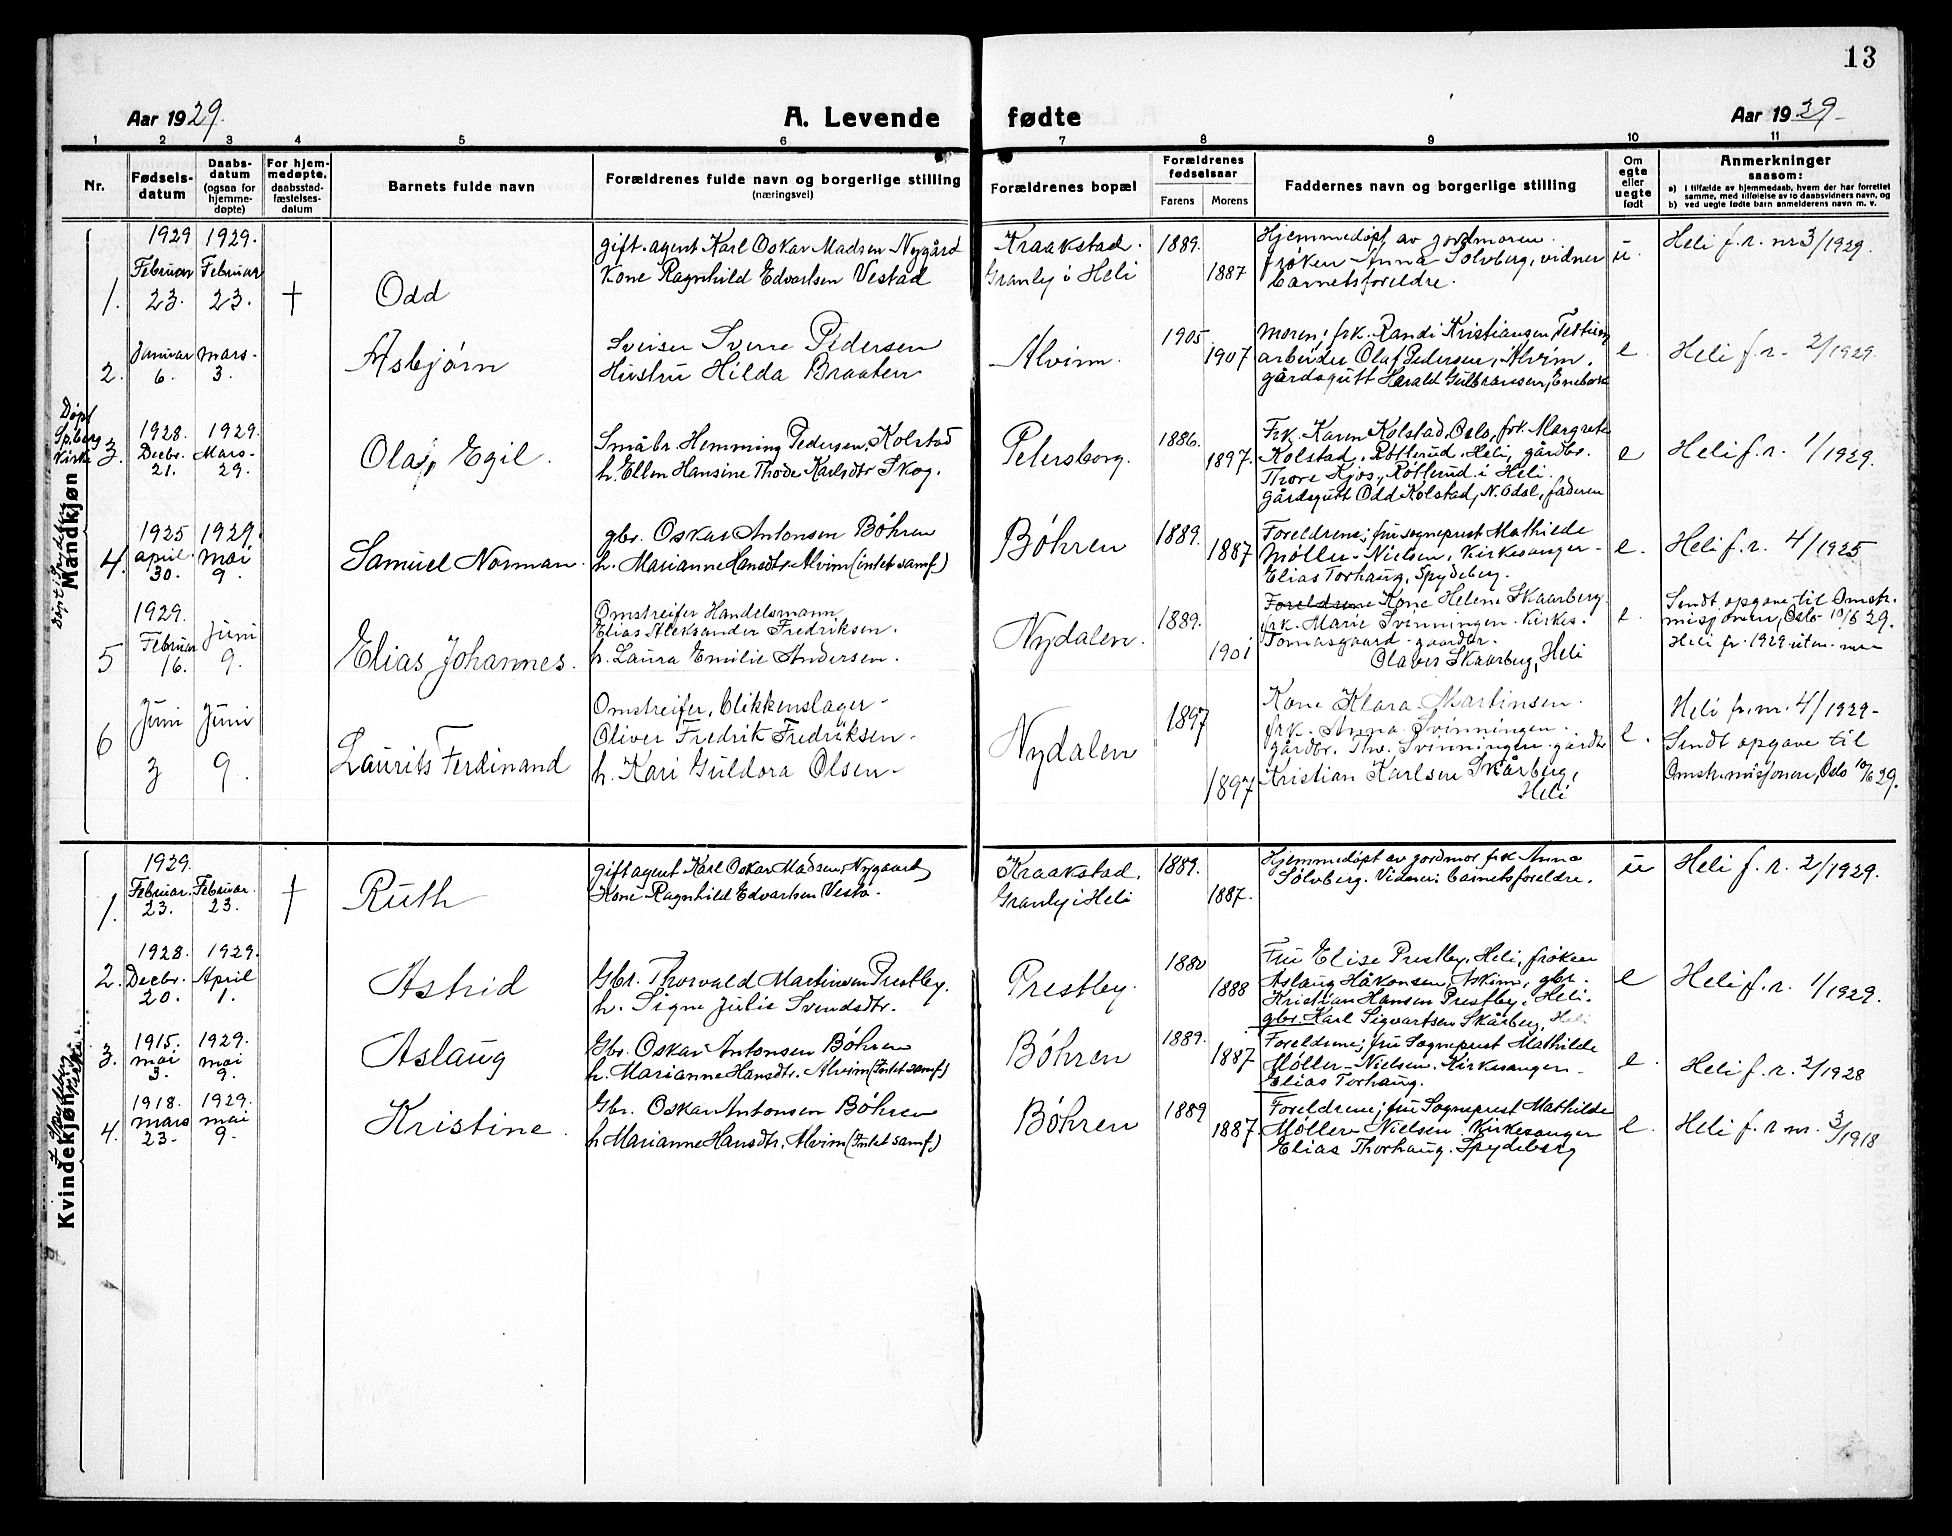 13
Aar 1929. A. Levende fødte Aar 1929
1 2 3 4 5 6 7 8 9 10 11
Nr.
Fødsels-
datum
Daabs-
datum
(ogsaa for
hjemme-
døpte)
For hjem-
medøpte,
daabsstad-
fæstelses-
datum
Barnets fulde navn
Forældrenes fulde navn og borgerlige stilling
(næringsvei)
Forældrenes bopæl
Forældrenes
fødselsaar
Farens Morens
Faddernes navn og borgerlige stilling
Om
egte
eller
uegte
født
Anmerkninger
saasom:
a) i tilfælde av hjemmedaab, hvem der har forrettet
samme, med tilføielse av to daabsvidners navn, og
b) ved uegte fødte barn anmelderens navn m. v.
Mandkjøn
1.
1929
Februar
23.
1929.
Februar
23.
†
Odd
gift. agent Karl Oskar Madsen Nygård
Kone Ragnhild Edvartsen Vestad
Kraakstad.
Granly i Heli
1889.
1887
Hjemmedøpt av jordmoren
frøken Anna Solvberg, vidner
barnetsforeldre.
u.
Heli f. r. nr 3/1929.
2.
Januar
6.
Mars-
3.
Asbjørn
Sveiser Sverre Pedersen
Hustru Hilda Braaten
Alvim.
1905
1907
Moren, frk. Randi Kristiansen,
arbeider Olaf Pedersen, Alvim.
gårdsgutt Harald Gulbransen, Enebak
e
Heli f. r. 2/1929.
Døpt
Sp.berg
Kirke
3.
1928.
Decbr.
21.
1929.
Mars-
29.
Olaf Egil.
Småbr. Hemming Pedersen Kolstad
h. Ellen Hansine Thode Karlsdtr Skog.
Petersborg.
1886.
1897.
Frk. Karen Kolstad, Oslo, frk. Margrete
Kolstad, Røtterud, Heli, gårdbr.
Thore Kjos, Røtterud i Heli.
Gårdsgutt Odd Kolstad, N. Odsl, faderen
e
Heli f. r. 1/1929.
Døpt i Spydeberg
4.
1925
april
30.
1929.
mai
9.
Samuel Norman.
gbr. Oskar Antonsen Bøhren
h. Marianne Hansdtr. Alvim (intet samf.)
Bøhren
1889.
1887
Foreldrene; fru sogneprest Mathilde
Møller-Nielsen, Kirkesanger-
Elias Torhaug, Spydeberg.
e.
Heli f. r. 4/1925
5
1929.
Februar
16.
Juni
9.
Elias Johannes.
Omstreifer Handelsmann
Elias Aleksander Fredriksen.
h. Laura Emilie Andersen.
Nydalen.
1889.
1901
Foreldrene Kone Helene Skaarberg.
frk. Marie Svenningen. Kirkes.
Tomasgaard - gaardbr.
Olaves Skaarberg, Heli
e.
Sendt opgave til Omstr.
misjonen, Oslo 10/6 29.
Heli fr. 1929 uten
6
Juni
3
Juni
9.
Laurits Ferdinand
Omstreifer, blikkenslager-
Oliver Fredrik Fredriksen-
h. Kari Guldora Olsen-
Nydalen
1897
1897
Kone Klara Martinsen.
frk. Anna Svinningen.
gårdbr. Thv. Svinningen. gårdbr
Kristian Karlsen Skårberg,
Heli
e.
Heli fr. nr. 4/1929-
Sendt opgave til
Omstr.misjonen, Oslo 10/6 29.
Kvindekjøn
1.
1929.
Februar.
23.
Februar.
23.
†
Ruth
gift agent Karl Oskar Madsen, Nygaard
Kone Ragnhild Edvartsen Vesta.
Kraakstad.
Granly i Heli
1889.
1887.
Hjemmedøpt av jordmor frk Anna
Solvberg. Vidner: barnetsforeldre.
u
Heli f. r. 2/1929.
2.
1928.
Decbr.
20.
1929.
April
1.
Astrid
Gbr. Thorvald Martinsen Prestby.
h. Signe Julie Svendsdtr.
Prestby.
1880
1888
Fru Elise Prestby, Heli, frøken
Aslaug Håkonsen, Askim, gbr.
Kristian Hansen Prestby i Heli.
gbr. Karl Sigvartsen Skårberg, Heli
e
Heli f. r. 1/1929.
3.
1915.
mai
3.
1929.
mai
9.
Aslaug
Gbr. Oskar Antonsen Bøhren
h. Marianne Hansdtr. Alvim (Intet samf.)
Bøhren
1889.
1887
Foreldrene; fru Sogneprest Mathilde
Møller-Nielsen. Kirkesanger-
Elias Torhaug.
e.
Heli f. r. 2/1928
4.
1918.
mars
23.
1929.
mai
9.
Kristine.
Gbr. Oskar Antonsen Bøhren
h Marianne Hansdtr. Alvim (Intet samf.)
Bøhren
1889
1887.
Foreldrene; fru Sogneprest Mathilde
Møller Nielsen. Kirkesanger
Elias Thorhaug. Spydeberg
e.
Heli f. r. nr. 3/1918